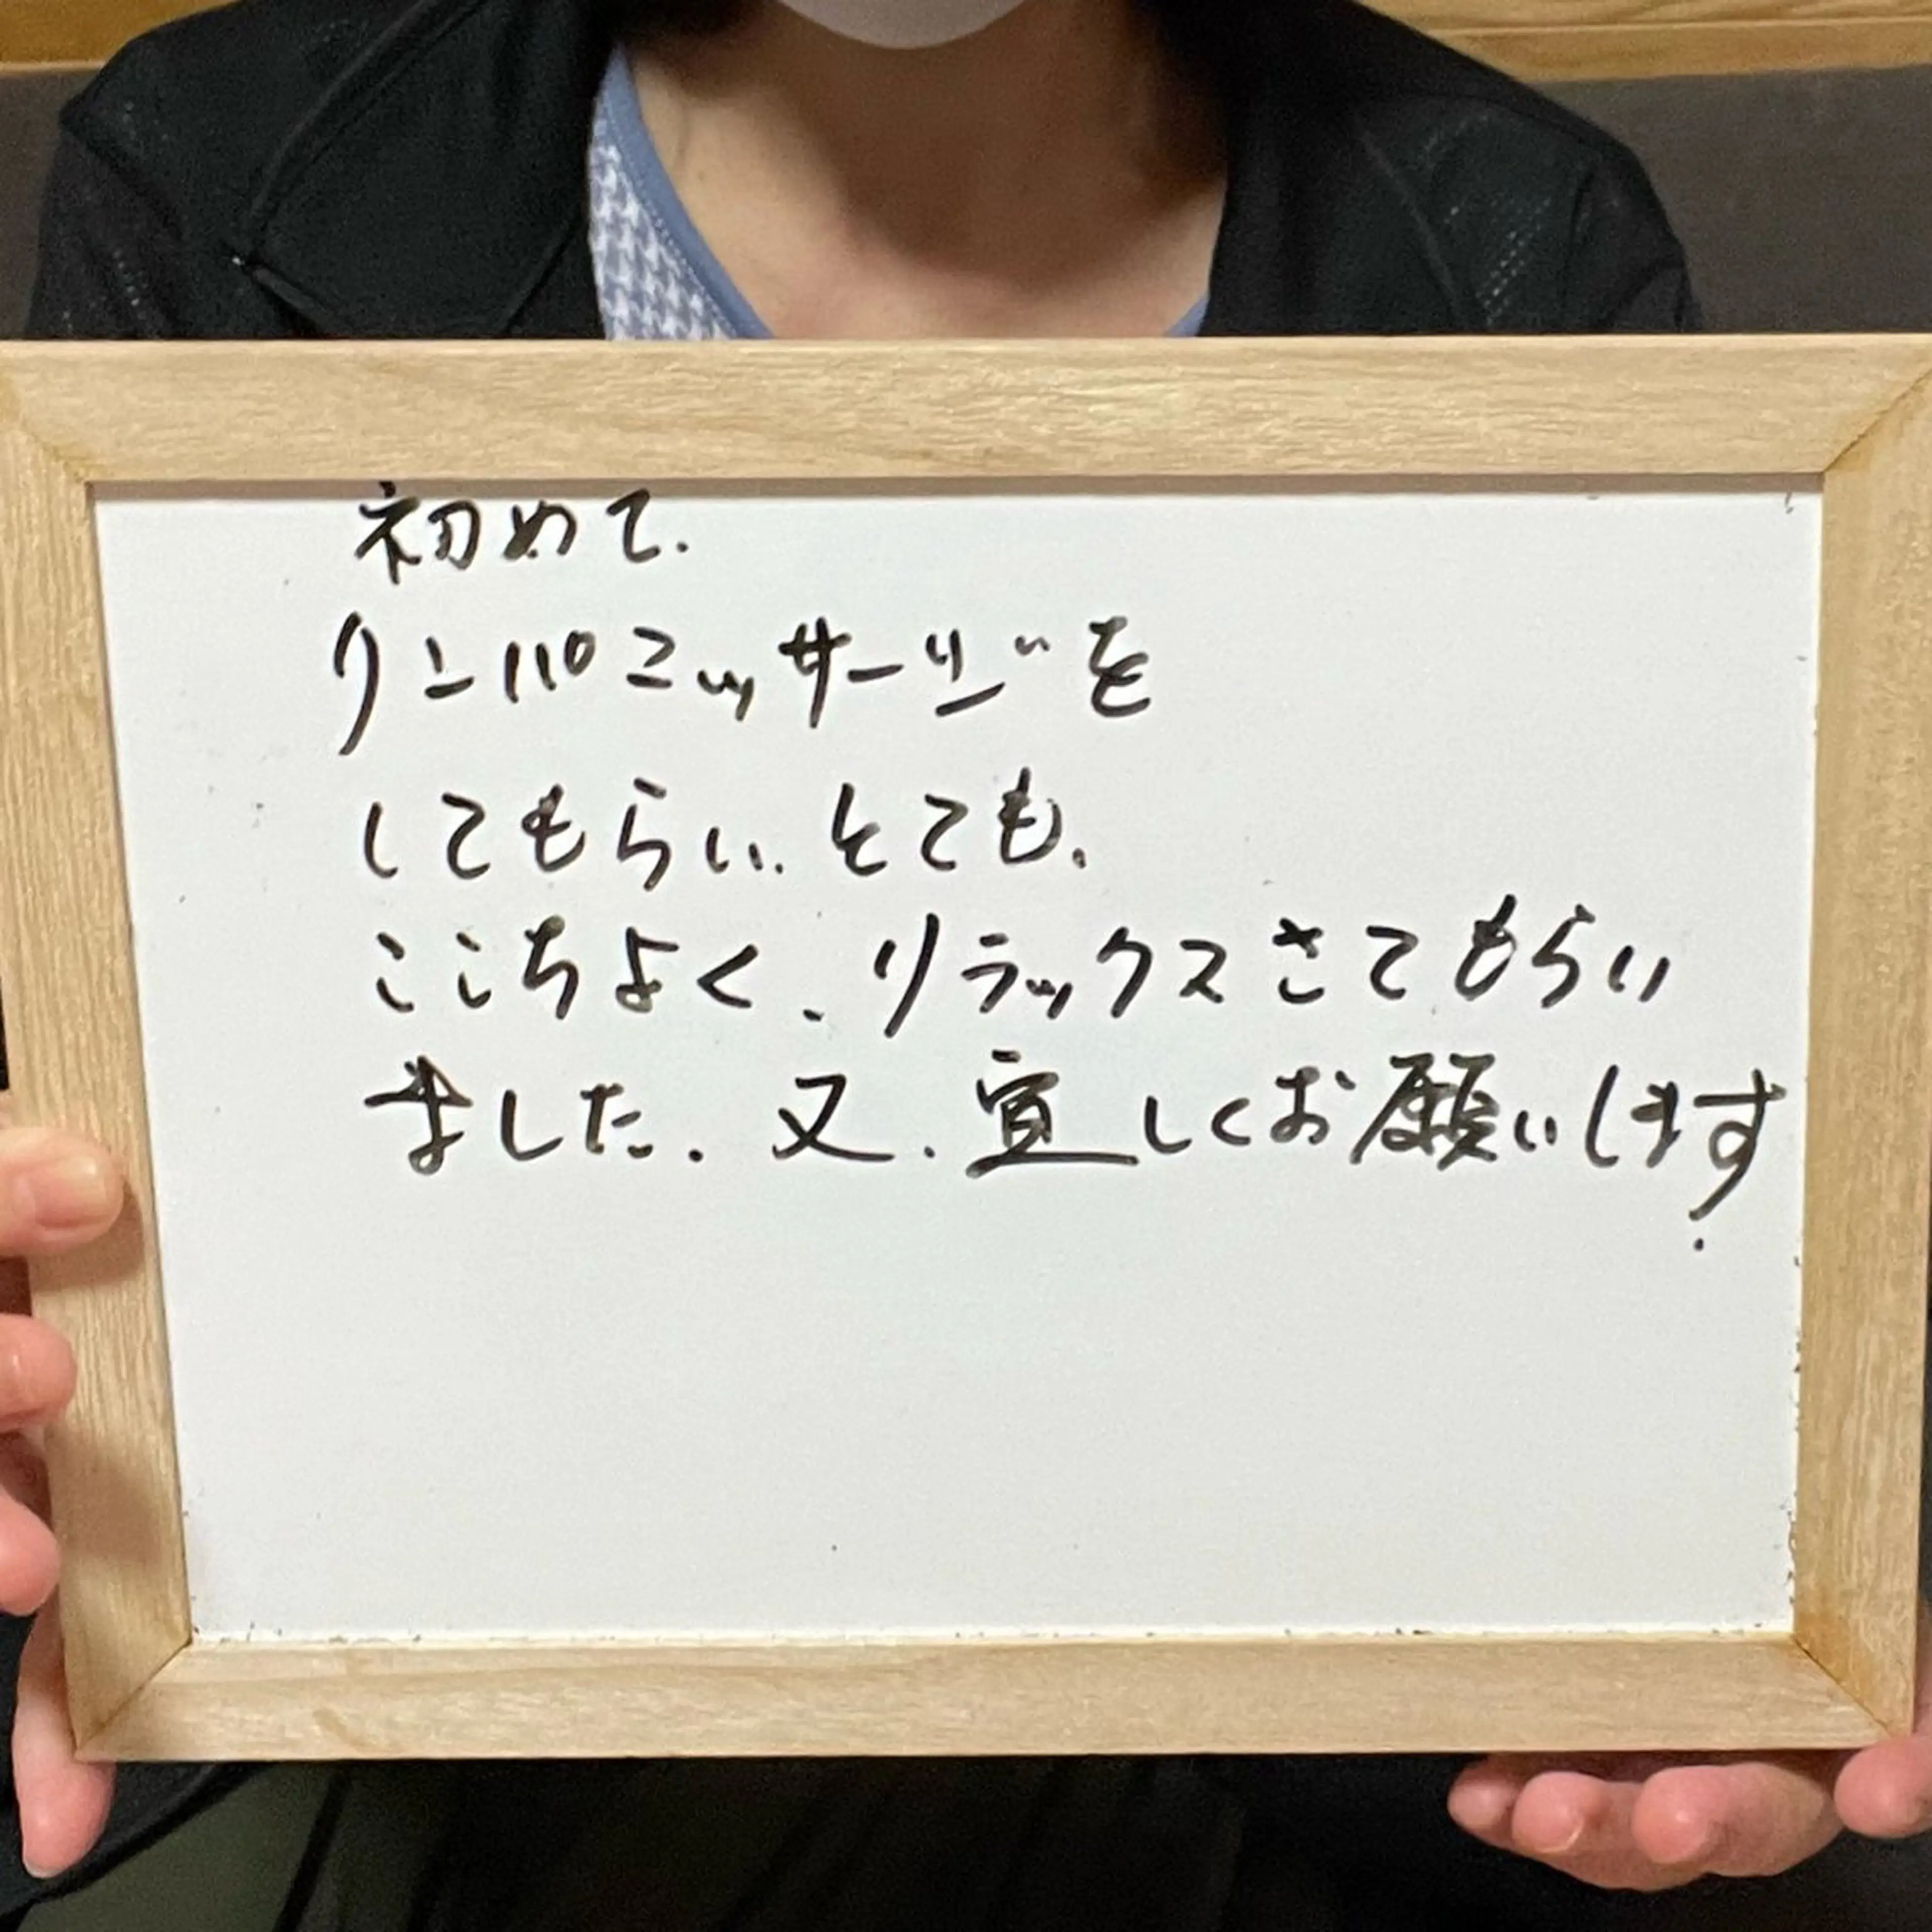 初めて.
リンパマッサージを
してもらい、とても、
ここちよく、リラックスさてもらい
ました. 又、宜しくお願いします.